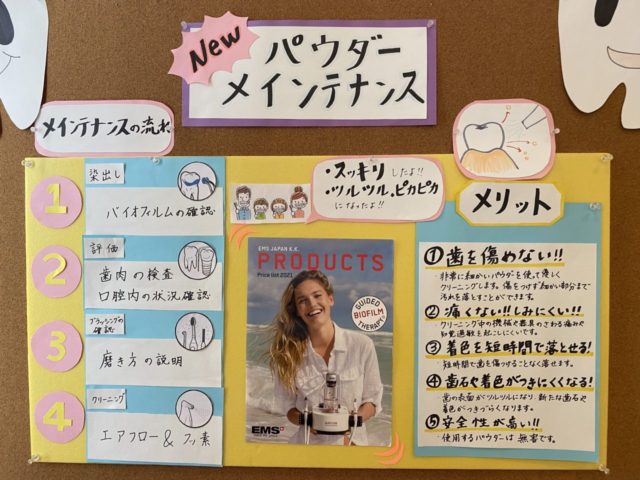 New
パウダー
メインテナンス
メインテナンスの流れ
1
染出し
バイオフィルムの確認
2
評価
歯肉の検査
口腔内の状況確認
3
ブラッシングの
確認
磨き方の説明
4
クリーニング
エアフロー & フッ素
・スッキリしたよ!!
・ツルツル、ピカピカ
になったよ!!
EMS JAPAN K.K.
PRODUCTS
Price list 2021
GUIDED
BIOFILM
THERAPY
EMS
メリット
①歯を傷めない!!
・非常に細かいパウダーを使って優しく
クリーニングします。傷をつけず細かい部分まで
汚れを落とすことができます。
②痛くない!!しみにくい!!
・クリーニング中の機械や器具のさわる痛みや
知覚過敏を起こしにくいです。
③着色を短時間で落とせる!
短時間で歯を傷つけることなく落せます。
④歯石や着色がつきにくくなる!
・歯の表面がツルツルになり、新たな歯石や
着色がつきづらくなります。
⑤安全性が高い!!
・使用するパウダーは無害です。